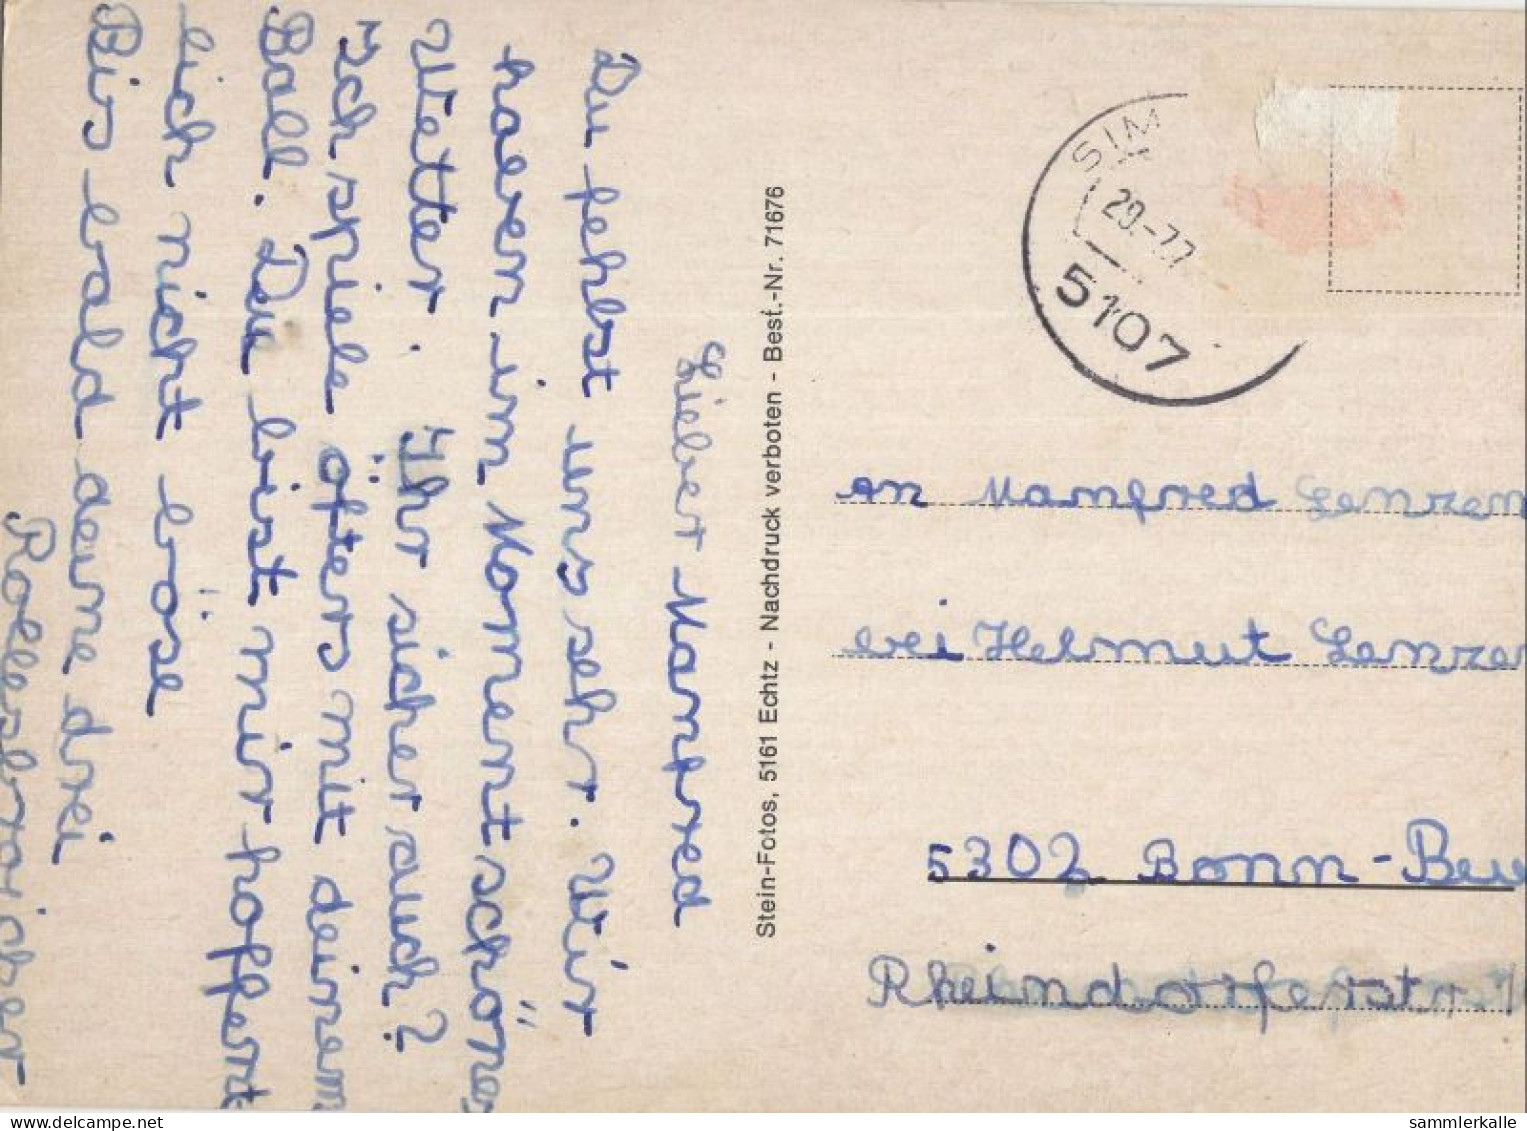 Lieber Manfred
Du fehlst uns sehr. Wir
haben im Moment schönes
Wetter. Ihr sicher auch?
Ich spiele öfters mit deinem
Ball. Du bist mir hoffent
lich nicht böse
Bis bald deine drei
Rollesbroicher
Stein-Fotos, 5161 Echtz - Nachdruck verboten - Best.-Nr. 71676
SIM
20.-7.7
5107
an Manfred Lenzen
bei Helmut Lenzen
5302 Bonn-Beu
Rheindorferstr. 1
sammlerkalle